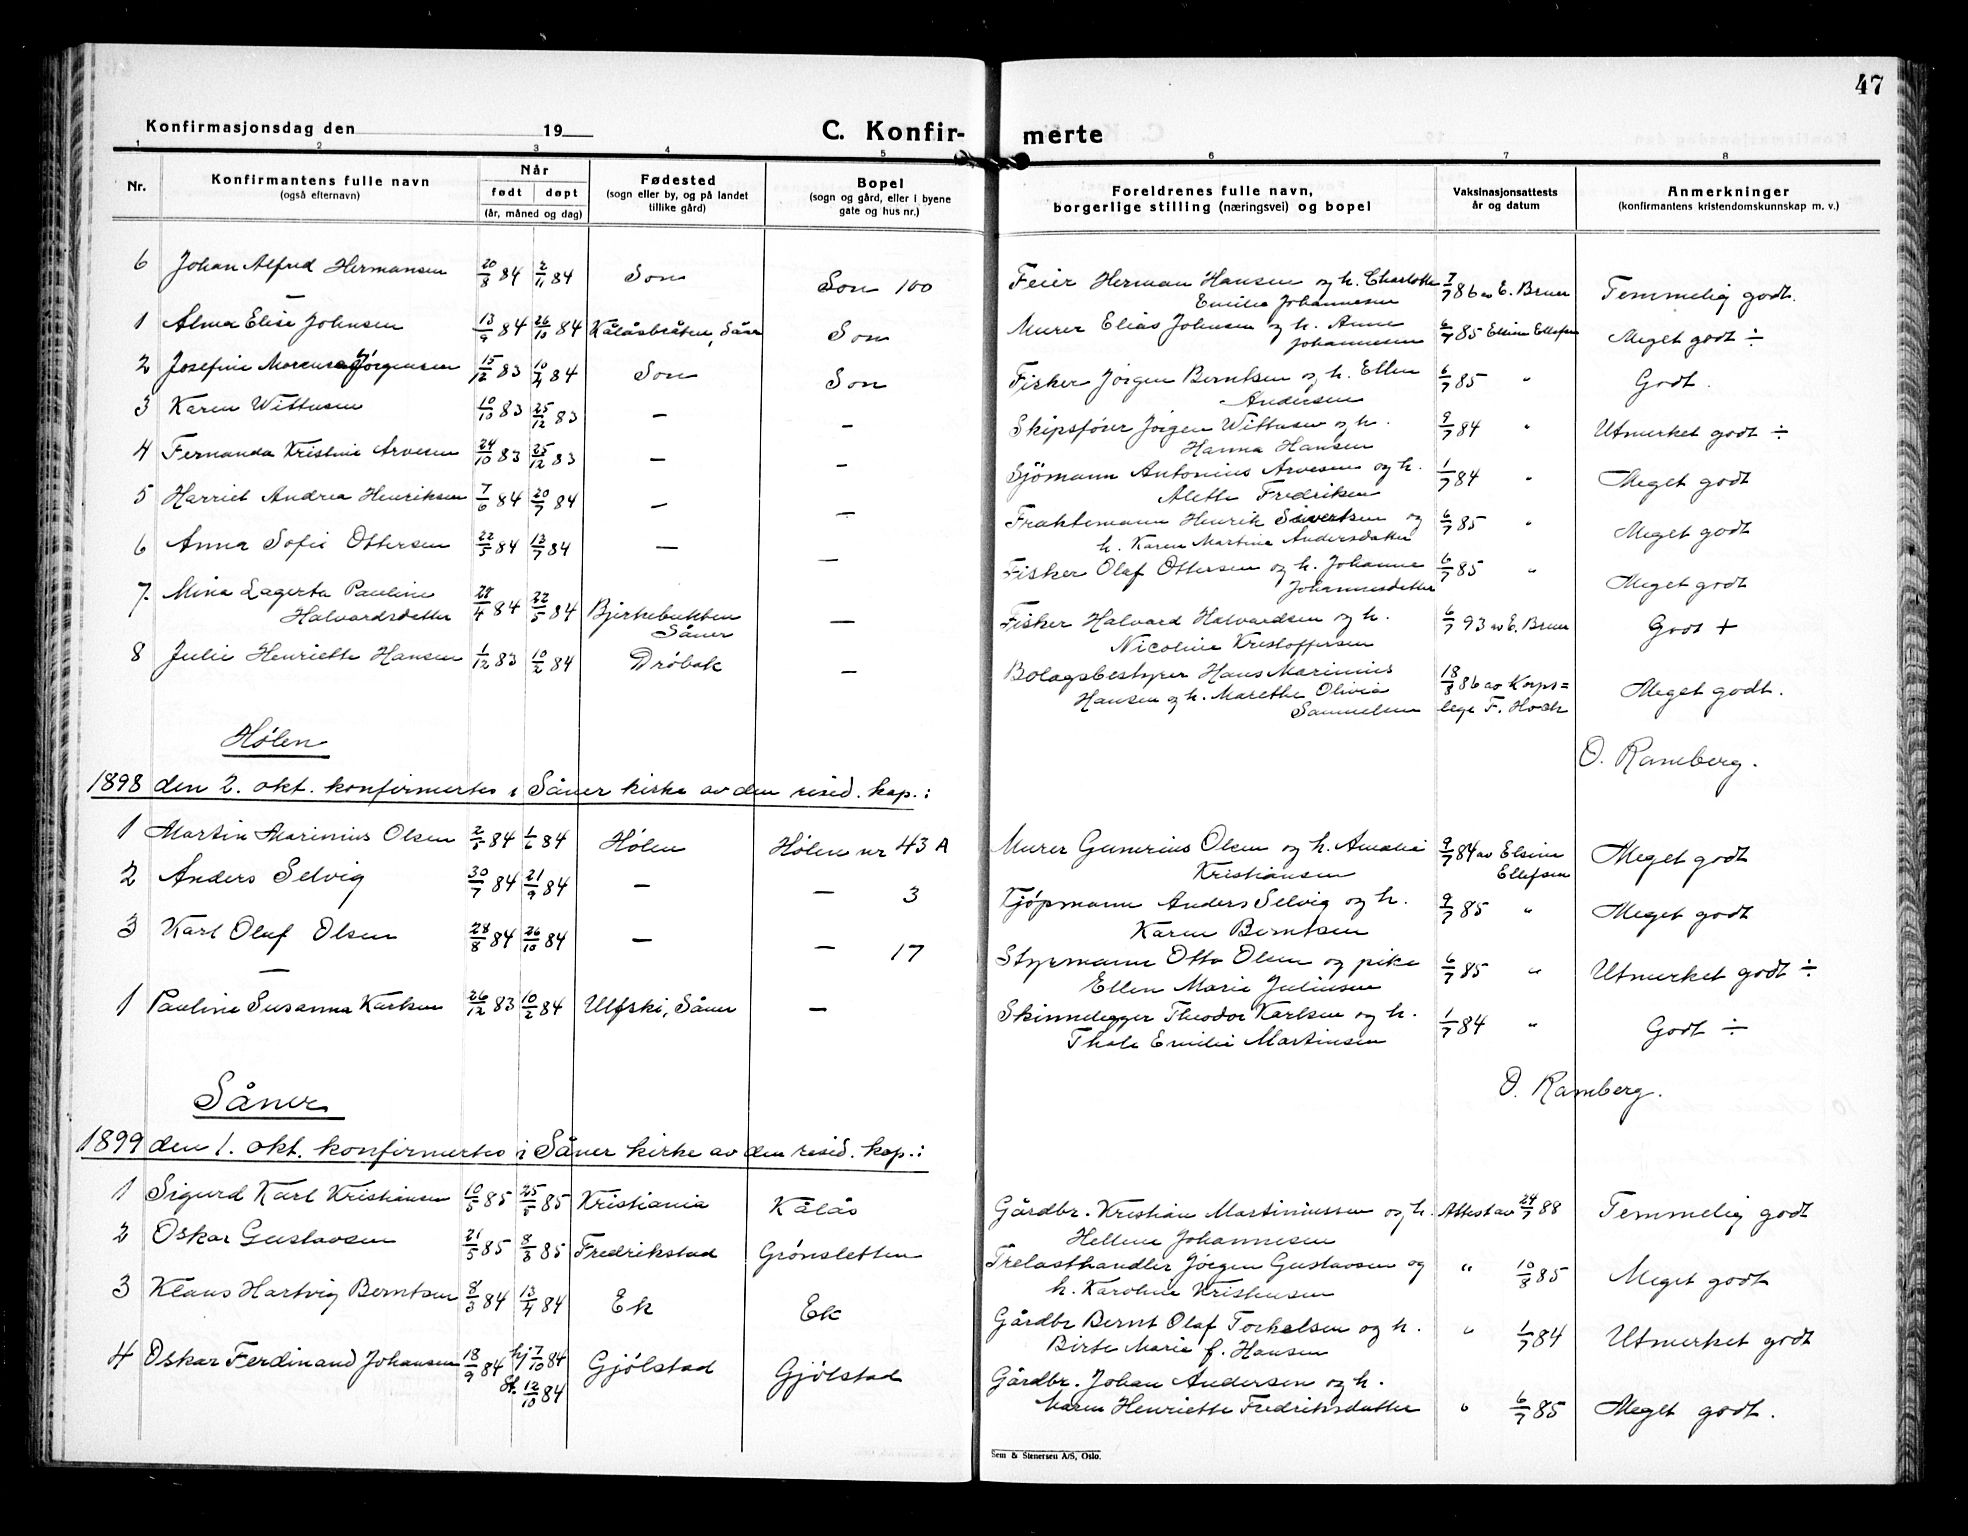 47
Konfirmasjonsdag den 19
C. Konfir-
merte
1 2 3 4 5 6 7 8
Nr.
Konfirmantens fulle navn
(også efternavn)
Når
født døpt
(år, måned og dag)
Fødested
(sogn eller by, og på landet
tillike gård)
Bopel
(sogn og gård, eller i byene
gate og hus nr.)
Foreldrenes fulle navn,
borgerlige stilling (næringsvei) og bopel
Vaksinasjonsattests
år og datum
Anmerkninger
(konfirmantens kristendomskunnskap m. v.)
6 Johan Alfred Hermansen 20/8 84 2/11 84 Son Son 100 Feier Herman Hansen og h. Charlotte 7/7 86 av E. Bruer Temmelig godt.
Emilie Johannesen
1 Alma Elise Johnsen 13/9 84 26/10 84 Kålåsbråten, Såner Son Murer Elias Johnsen og h. Anne 6/7 85 Elsine Ellefsen Meget godt ÷
Johannesen
2 Josefine Jørgensen 15/12 83 10/4 84 Son Son Fisker Jørgen Berntsen og h. Ellen 6/7 85 " Godt.
Andersen
3 Karen Wittusen 10/10 83 25/12 83 — — Skipsfører Jørgen Wittusen og h. 9/7 84 " Utmerket godt ÷
Hanna Hansen
4 Fernanda Kristine Arvesen 24/10 83 25/12 83 — — Sjømann Antonius Arvesen og h. 1/7 84 " Meget godt
Alette Fredriksen
5 Harriet Andrea Henriksen 7/6 84 20/7 84 — — Fraktemann Henrik Sivertsen og 6/7 85 " Meget godt
h. Karen Martine Andersdatter
6 Anna Sofie Ottersen 22/5 84 13/7 84 — — Fisker Olaf Ottersen og h. Johanne 6/7 85 " Meget godt
Johannesdatter
7. Mina Lagerta Pauline
Halvardsdatter 84 22/5 84 Bjerkebukken
Såner — Fisker Halvard Halvardsen og h. 6/7 93 av E. Bruer Godt +
Nicoline Kristoffersen
8 Julie Henriette Hansen 1/12 83 10/2 84 Drøbak — Bolagsbestyrer Hans Marinius 18/8 86 av Korps= Meget godt.
Hansen og h. Marethe Olivia
Samuelsen lege F. Hoch
Hølen
O. Ramberg.
1898 den 2. okt. konfirmertes i Såner kirke av den resid. kap.:
1 Martin Marinius Olsen 84 84 Hølen Hølen nr 43 A Murer Gunerius Olsen og h. Amalie 9/7 84 av Elsine Meget godt
Kristiansen Ellefsen
2 Anders Selvig 30/7 84 21/9 84 — — 3 Kjøpmann Anders Selvig og h. 9/7 85 " Meget godt
Karen Berntsen
3 Karl Oluf Olsen 28/8 84 26/10 84 — — 17 Styrmann Otto Olsen og pike 6/7 85 " Utmerket godt ÷
Ellen Marie Juliusen
1 Pauline Susanna Karlsen 26/12 83 10/2 84 Ulfski, Såner — Skinnelegger Theodor Karlsen og h. 1/7 84 " Godt ÷
Thale Emilie Martinsen
O. Ramberg.
Såner
1899 den 1. okt. konfirmertes i Såner kirke av den resid. kap.:
1 Sigurd Karl Kristiansen 10/5 85 25/5 85 Kristiania Kålås Gårdbr. Kristian Martiniussen og h. Attest av 24/7 88 Temmelig godt
Hellene Johannesen
2 Oskar Gustavsen 21/5 85 8/3 85 Fredrikstad Grønsletten Trelasthandler Jørgen Gustavsen og " 10/8 85 Meget godt
h. Karoline Kristensen
3 Klaus Hartvig Berntsen 8/3 84 13/4 84 Ek Ek Gårdbr Bernt Olaf Torkelsen og h. " 1/7 84 Utmerket godt
Birte Marie f. Hansen
4 Oskar Ferdinand Johansen 18/9 84 hj 7/10 84 Gjølstad Gjølstad Gårdbr. Johan Andersen og h.
st. 12/10 84 Maren Henriette Fredriksdatter " 6/7 85 Meget godt.
Sem & Stenersen A/S, Oslo.